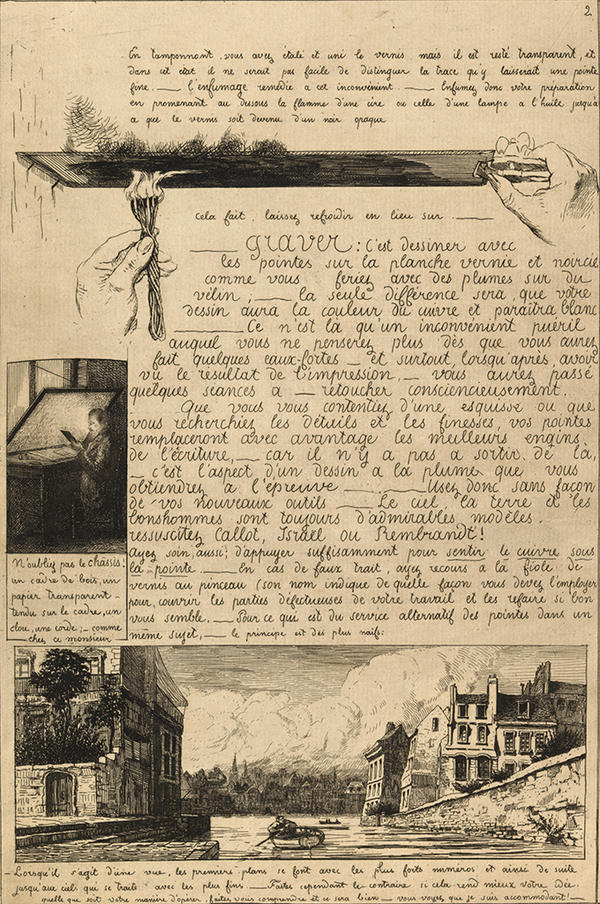 2
En tamponnant, vous avez étalé et uni le vernis mais il est resté transparent, et
dans cet état il ne serait pas facile de distinguer la trace qu'y laisserait une pointe
fine. — l'enfumage remédie a cet inconvénient. — Enfumez donc votre préparation
en promenant au dessous la flamme d'une cire ou celle d'une lampe a l'huile jusqu'à
a que le vernis soit devenu d'un noir opaque
Cela fait, laissez refroidir en lieu sur. —
— GRAVER: c'est dessiner avec
les pointes sur la planche vernie et noircie
comme vous feriez avec des plumes sur du
vélin; — la seule différence sera, que votre
dessin aura la couleur du cuivre et paraîtra blanc
— Ce n'est là qu'un inconvénient puéril
auquel vous ne penserez plus dès que vous aurez
fait quelques eaux-fortes — et surtout, lorsqu'après, avoir
vu le résultat de l'impression, — vous aurez passé
quelques séances a — retoucher consciencieusement.
Que vous vous contentiez d'une esquisse ou que
vous recherchiez les détails et les finesses, vos pointes
remplaceront avec avantage les meilleurs engins
de l'écriture, — car il n'y a pas a sortir de là,
— c'est l'aspect d'un dessin a la plume que vous
obtiendrez a l'épreuve — Usez donc sans façon
de vos nouveaux outils — Le ciel, la terre et les
bonshommes sont toujours d'admirables modèles.
ressuscitez Callot, Israël ou Rembrandt!
Ayez soin, aussi, d'appuyer suffisamment pour sentir le cuivre sous
la pointe. — En cas de faux trait, ayez recours a la fiole de
vernis au pinceau (son nom indique de quelle façon vous devez l'employer
pour, couvrir les parties défectueuses de votre travail et les refaire si bon
vous semble. — Pour ce qui est du service alternatif des pointes dans un
même sujet, — le principe est des plus naïfs:
N'oubliez pas le châssis!
un cadre de bois, un
papier transparent -
tendu sur le cadre, un
clou, une corde; — comme
chez ce monsieur
- Lorsqu'il s'agit d'une vue, les premiers plans se font avec les plus forts numéros et ainsi de suite
jusqu'aux ciels qui se traite avec les plus fins. — Faites cependant le contraire si cela rend mieux votre idée.
quelle que soit votre manière d'opérer, faites vous comprendre et ce sera bien — vous voyez que je suis accommodant! —